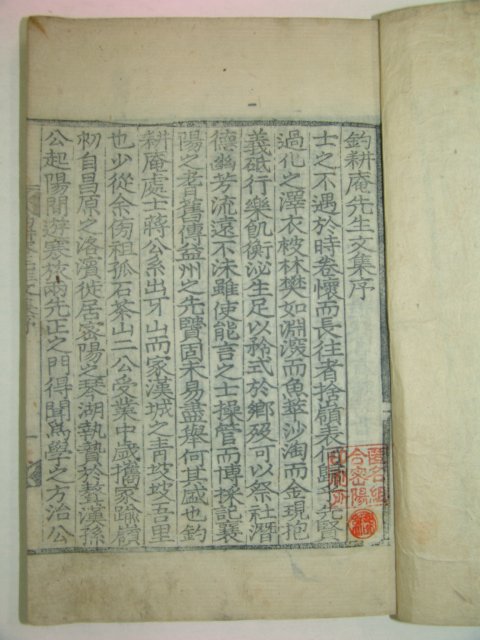 釣耕庵先生文集序
士之不遇於時卷懷而長往者捨嶺表何歸先賢
過化之澤衣被林樊如淵潑而魚萃沙淘而金現抱
義砥行樂飢衡泌生足以矜式於鄉歿可以祭社潛
德幽芳流遠不沫雖使能言之士操管而博採記襄
陽之耆舊傳益州之先賢固未易盡舉何其盛也釣
耕庵處士蔣公系出牙山而家漢城之靑坡坡吾里
也少從余傍祖孤石茶山二公受業中歲擕家踰嶺
初自昌原之洛濱徙居密陽之琴湖執贄於鰲漢孫
公起陽間遊寒旅兩先正之門得聞爲學之方治公
匿名組
合密陽
印刷所